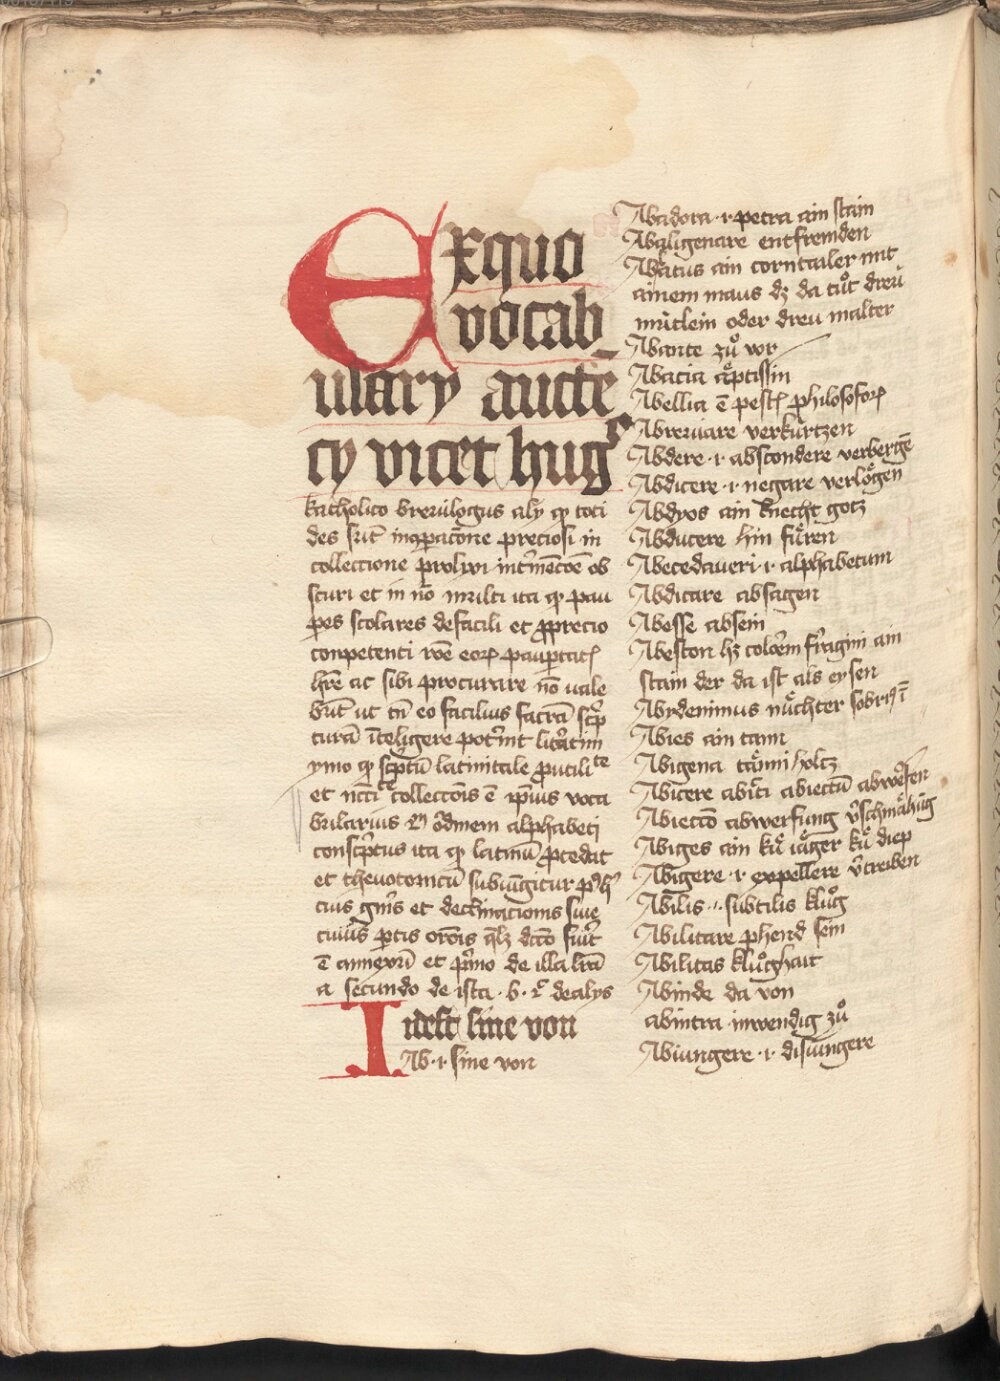 Exquo
vocab
ulary aucte
cy vicet hugͦ
katholico breuilogus aly qꝫ toti
des sūt incōparacōne preciosi in
collectione prolixi intencōe ob
scuri et in nō multi ita qꝫ pau
peres scolares de facili et precio
conpetenti eorꝫ paupertatꝭ
hr̄e ac sibi procurare nō vale
būt ut tn̄ eo facilius sacrā scͥp
turā īteligere poter̄nt
ymo qꝫ scͥptū latinitale
et collectōis ē ip̄ius voca
bularius ordinem alphabeti
conscͥptus ita qꝫ latinū procedat
et thevotonicū subiūgitur
cius gnīs et declinacionis siue
cuius partis orōis dictō fuit
ē annexū et pͥmo de illa lrā
a secundo de ista · b · de alys
I idest sine von
Ab · i · sine von
Abadora · i · petra ain stain
Abaligenare entfremden
Abatus ain corntailer mit
ainem maus dz da tuͦt dreu
mütlein oder dreu malter
Abante zuͦ vor
Abatia aͤptissin
Abellia ē pestꝭ philosoforꝫ
Abreuiare verkürtzen
Abdere · i · abscondere verbergē
Abdicere · i · negare verloͤgen
Abdyos ain knecht gotz
Abducere hin fuͤren
Abecedaueri · i · alphabetum
Abdicare absagen
Abesse absein
Abeston hꝫ colorem ain
stain der da ist als eysen
Abydenimus nuͤchter
Abies ain tann
Abigena taͤnni holtz
Abicere abieci abiectū abwerfen
Abiectō abwerfung v̄schmaͤhūg
Abiges ain kuͤ iaͤger kuͤ diep
Abigere · i · expellere v̄treiben
Abilis ·· subtilis kluͦg
Abilitare phend sein
Abilitas kluͦghait
Abinde da von
abintra inwendig zuͦ
Abiungere · i · disiungere